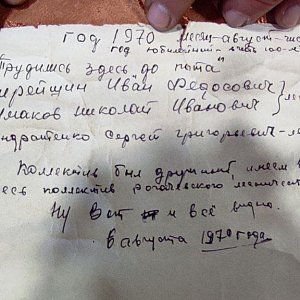 год 1970 месяц август-чис
год юбилейный - 100-ле
"Трудились здесь до пота"
ирейщин Иван Федосович
маков Николай Иванович
ндратенко Сергей Григорьевич-л
Коллектив был дружный, имеем в
есь коллектив Рогачевского лесничест
Ну вот и всё видно.
6 августа 1970 года